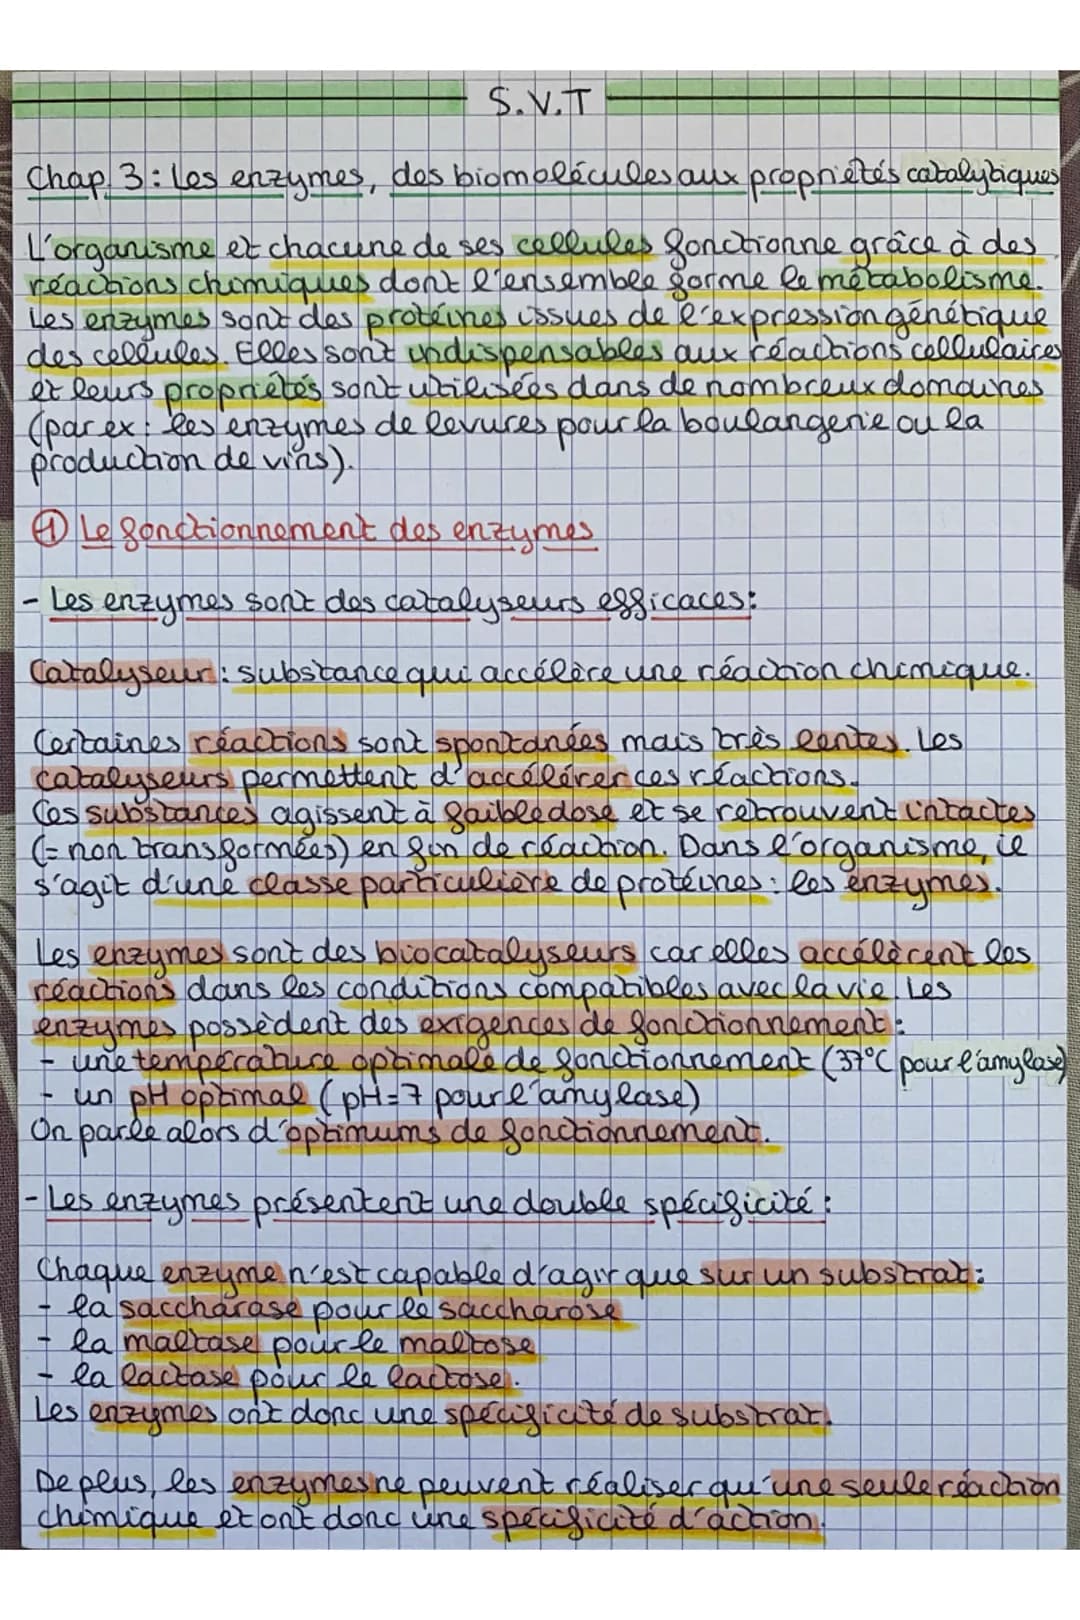 S.V.T
Chap 3 : Les enzymes, des biomolécules aux propriétés catalytiques
L'organisme et chacune de ses cellules fonctionne grâce à des
réactions chimiques dont l'ensemble forme le métabolisme.
Les enzymes sont des protéines issues de l'expression génétique
des cellules. Elles sont indispensables aux réactions cellulaires
et leurs propriétés sont utilisées dans de nombreux domaines
(par ex : les enzymes de levures pour la boulangerie ou la
production de vins).
① Le fonctionnement des enzymes
- Les enzymes sont des catalyseurs efficaces :
Catalyseur : substance qui accélère une réaction chimique.
Certaines réactions sont spontanées mais très lentes. Les
catalyseurs permettent d'accélérer ces réactions.
Ces substances agissent à faible dose et se retrouvent intactes
(= non transformées) en fin de réaction. Dans l'organisme, il
s'agit d'une classe particulière de protéines : les enzymes.
Les enzymes sont des biocatalyseurs car elles accélèrent les
réactions dans les conditions compatibles avec la vie. Les
enzymes possèdent des exigences de fonctionnement :
- une température optimale de fonctionnement (37°C pour l'amylase)
- un pH optimal (pH = 7 pour l'amylase)
On parle alors d'optimums de fonctionnement.
- Les enzymes présentent une double spécificité :
Chaque enzyme n'est capable d'agir que sur un substrat :
- la saccharase pour le saccharose
- la maltase pour le maltose
- la lactase pour le lactose.
Les enzymes ont donc une spécificité de substrat.
De plus, les enzymes ne peuvent réaliser qu'une seule réaction
chimique et ont donc une spécificité d'action.